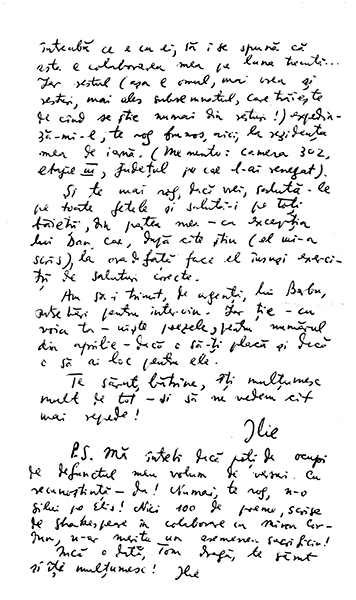 întreabă ce e cu ei, să i se spună că
aste e colaborarea mea pe luna trecută...
Iar restul (așa e omul, mai vrea și
resturi, mai ales subsemnatul, care trăiește
de cînd se știe numai din resturi!) expediază-
mi-l, te rog frumos, aici, la reședința
mea de iarnă. (Memento: camera 302,
etajul III, județul pe care l-ai renegat).
Și te mai rog, dacă vrei, salută-le
pe toate fetele și salută-i pe toți
băieții, din partea mea – cu excepția
lui Dan, care, după cîte știu (el mi-a
scris), la ora de față face el însuși exerci-
ții de saluturi corecte.
Am să-i trimit, de urgență, lui Barbu,
întrebări pentru interviu. Iar ție – cu
voia ta – niște poezele, pentru numărul
din aprilie – dacă o să-ți placă și dacă
o să ai loc pentru ele.
Te sărut, bătrîne, îți mulțumesc
mult de tot – și să ne vedem cît
mai repede!
Ilie
P.S. Mă întreb dacă poți să te ocupi
de defunctul meu volum de versuri. Cu
recunoștință – da! Numai, te rog, n-o
sili pe Elis! Nici 100 de poeme, scrise
de Shakespeare în colaborare cu Miron
n-ar merita un asemenea sacrificiu!
Încă o dată, Tom dragă, te sărut
și îți mulțumesc! Ilie